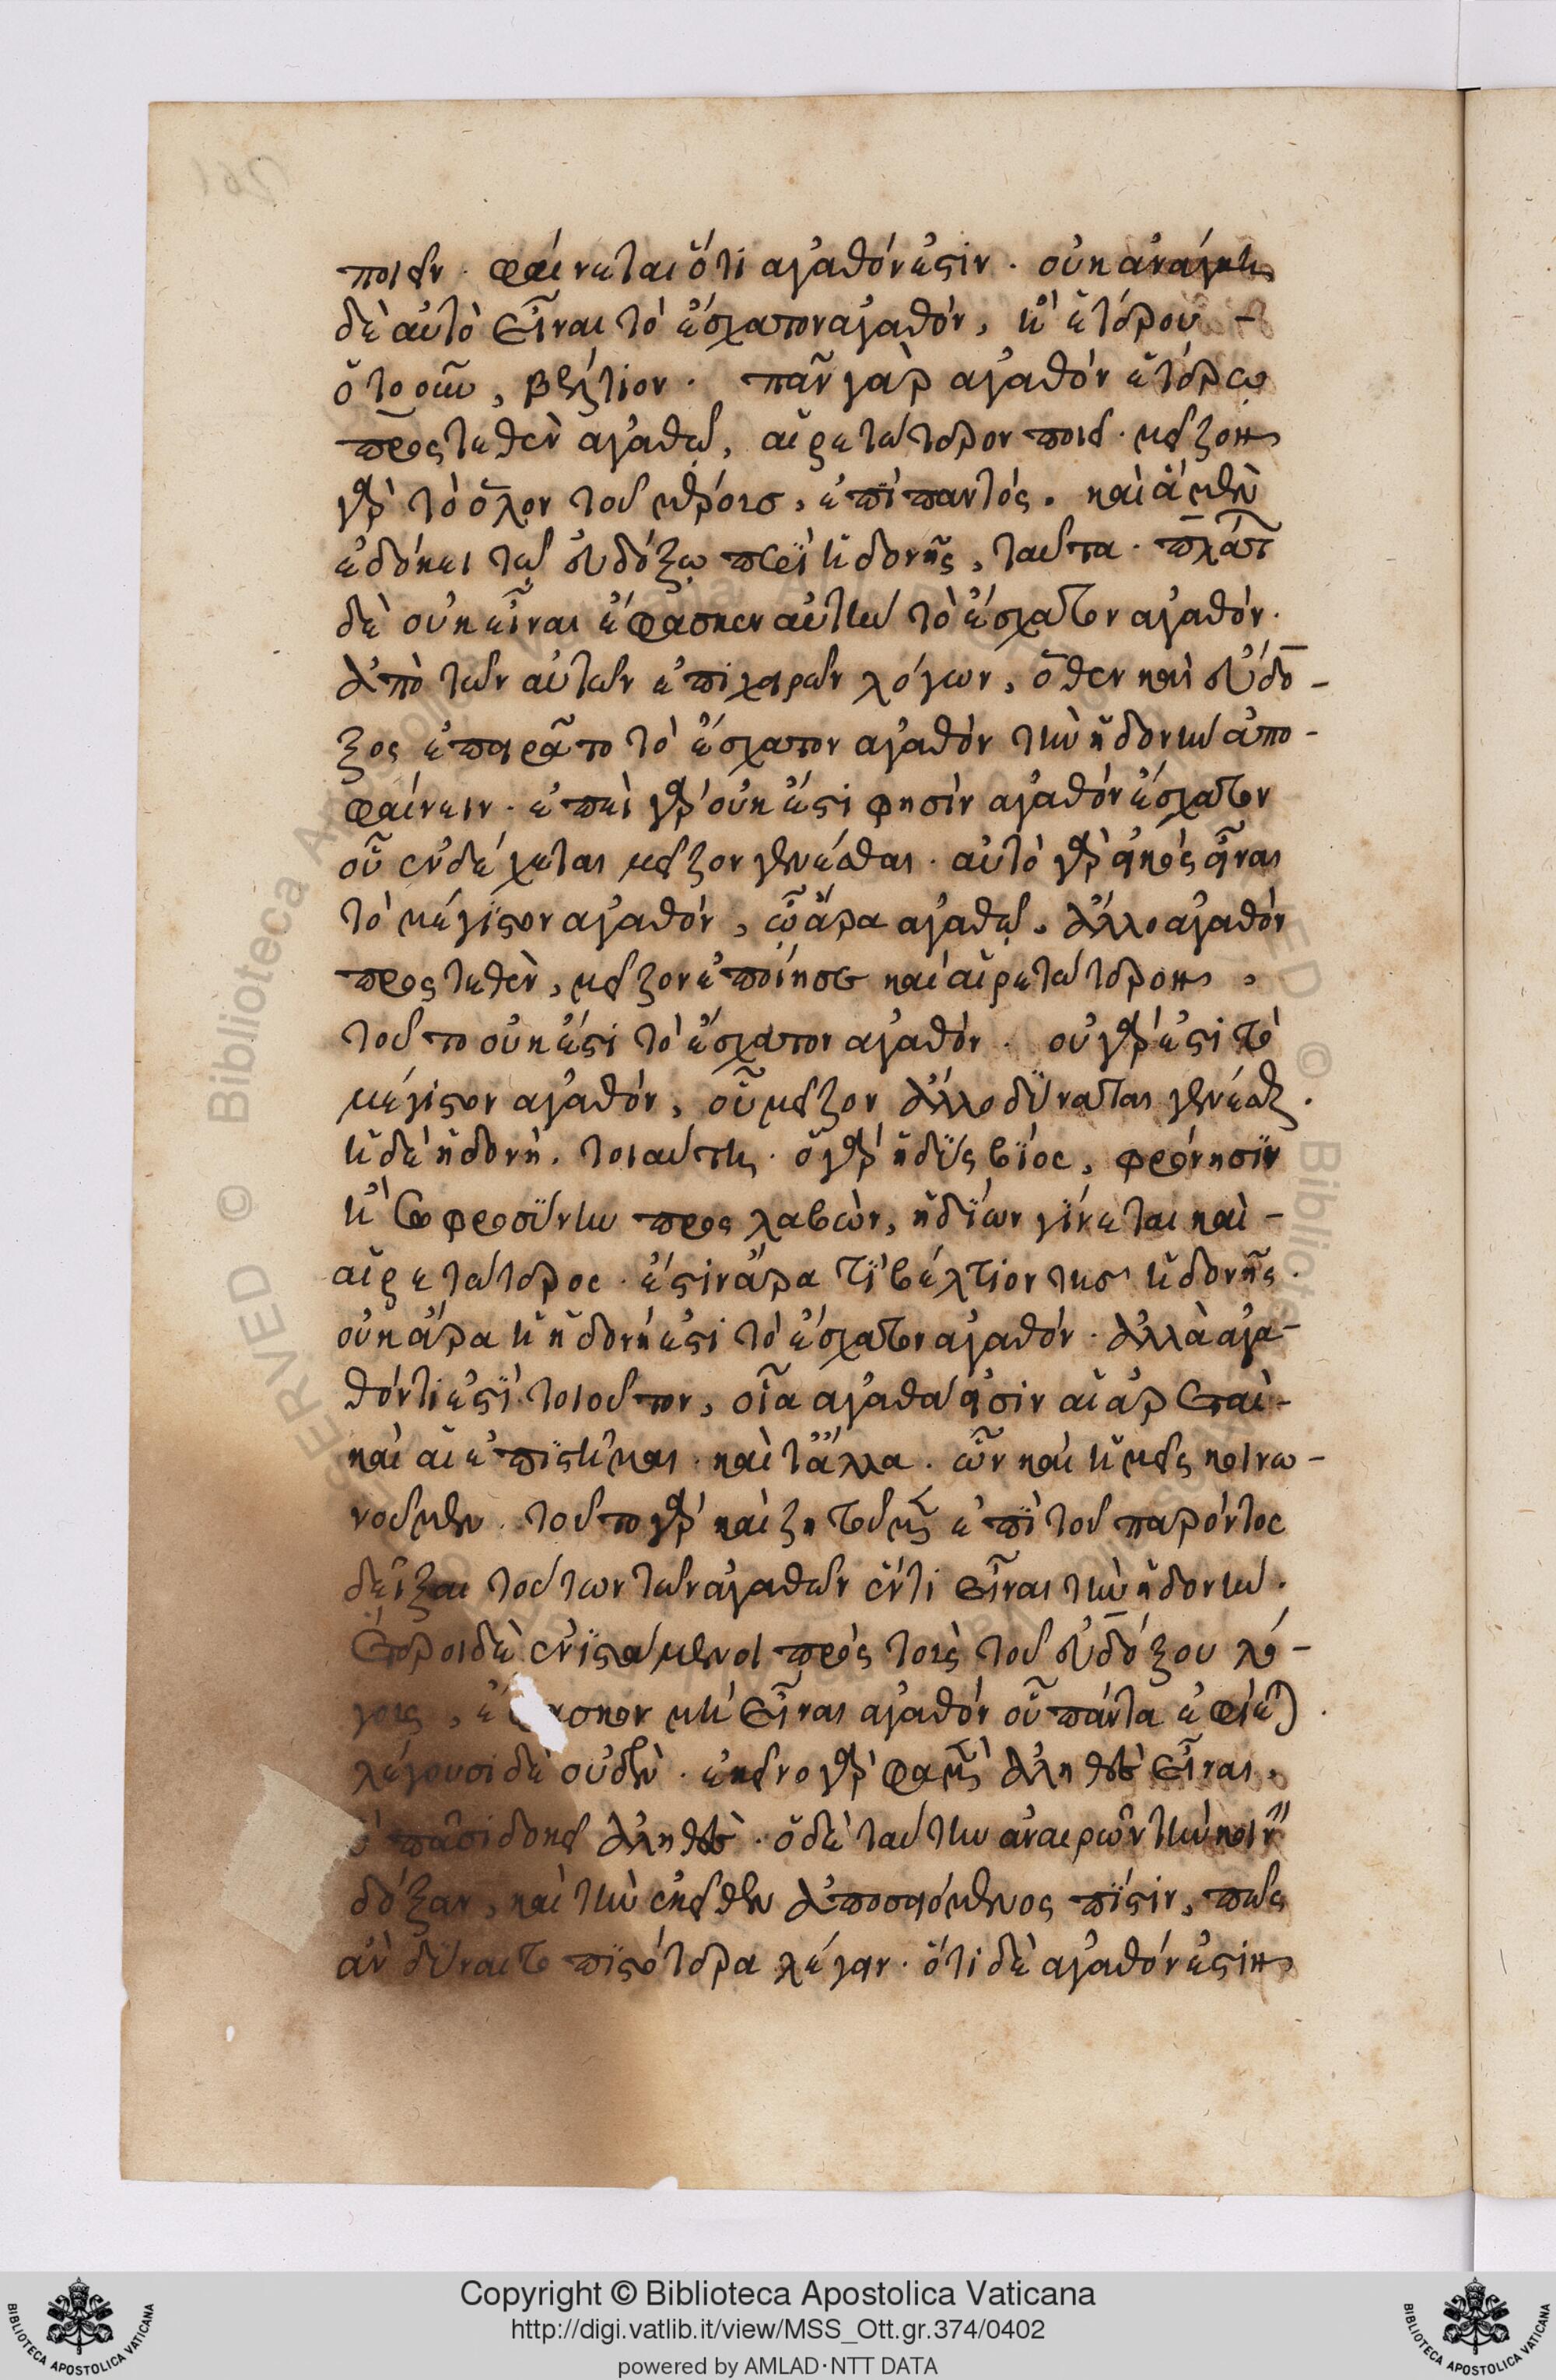 ποιεῖν. φαίνεται ὅτι ἀγαθόν ἐστιν. οὐκ ἀνάγκη
δὲ αὐτὸ εἶναι τὸ ἔσχατον ἀγαθόν, ἢ ἑτέρου -
ὁτουοῦν, βέλτιον. πᾶν γὰρ ἀγαθὸν ἑτέρῳ
προστεθὲν ἀγαθῷ, αἱρετώτερον ποιεῖ. μεῖζον
γὰρ τὸ ὅλον τοῦ μέρους, ἐπὶ παντός. καὶ ἃ μὲν
ἐδόκει τῷ εὐδόξῳ περὶ ἡδονῆς, ταῦτα. πλάτ
δὲ οὐκ εἶναι ἔφασκεν αὐτὴν τὸ ἔσχατον ἀγαθόν.
ἀπὸ τῶν αὐτῶν ἐπιχειρῶν λόγων, ὅθεν καὶ εὔδο-
ξος ἐπειρᾶτο τὸ ἔσχατον ἀγαθὸν τὴν ἡδονὴν ἀπο-
φαίνειν. ἐπεὶ γὰρ οὐκ ἔστι φησὶν ἀγαθὸν ἔσχατον
οὗ ἐνδέχεται μεῖζον γενέσθαι. αὐτὸ γὰρ εἰκὸς εἶναι
τὸ μέγιστον ἀγαθόν, ᾧ ἄρα ἀγαθῷ. ἄλλο ἀγαθὸν
προστεθὲν, μεῖζον ἐποίησε καὶ αἱρετώτερον,
τοῦτο οὐκ ἔστι τὸ ἔσχατον ἀγαθόν. οὐ γάρ ἐστι τὸ
μέγιστον ἀγαθόν, οὗ μεῖζον ἄλλο δύναται γενέσθαι.
ἡ δὲ ἡδονή. τοιαύτη. ὁ γὰρ ἡδὺς βίος, φρόνησιν
ἢ σωφροσύνην προσλαβὼν, ἡδίων γίνεται καὶ -
αἱρετώτερος. ἔστιν ἄρα τὶ βέλτιον τῆς ἡδονῆς.
οὐκ ἄρα ἡ ἡδονή ἐστι τὸ ἔσχατον ἀγαθόν. ἀλλὰ ἀγα-
θόν τί ἐστι τοιοῦτον, οἷα ἀγαθά εἰσιν αἱ ἀρεταὶ -
καὶ αἱ ἐπιστῆμαι. καὶ τἄλλα. ὧν καὶ ἡμεῖς κοινω-
νοῦμεν. τοῦτο γὰρ καὶ ζητοῦμεν ἐπὶ τοῦ παρόντος
δεῖξαι τούτων τῶν ἀγαθῶν ἕν τι εἶναι τὴν ἡδονήν.
Ἕτεροι δὲ ἐνιστάμενοι πρὸς τοὺς τοῦ εὐδόξου λό-
γους, ἔφασκον μὴ εἶναι ἀγαθὸν οὗ πάντα ἐφίεται.
λέγουσι δὲ οὐδὲν. ἐκεῖνο γὰρ φαμὲν ἀληθὲς εἶναι,
ὃ πᾶσι δοκεῖ ἀληθὲς. ὁ δὲ ταύτην ἀναιρῶν τὴν κοινὴν
δόξαν, καὶ τὴν ἐκεῖθεν ἀποσειόμενος πίστιν, πῶς
ἂν δύναιτο πιστότερα λέγειν. ὅτι δὲ ἀγαθόν ἐστιν
Copyright © Biblioteca Apostolica Vaticana
http://digi.vatlib.it/view/MSS_Ott.gr.374/0402
powered by AMLAD·NTT DATA
BIBLIOTECA APOSTOLICA VATICANA
BIBLIOTECA APOSTOLICA VATICANA